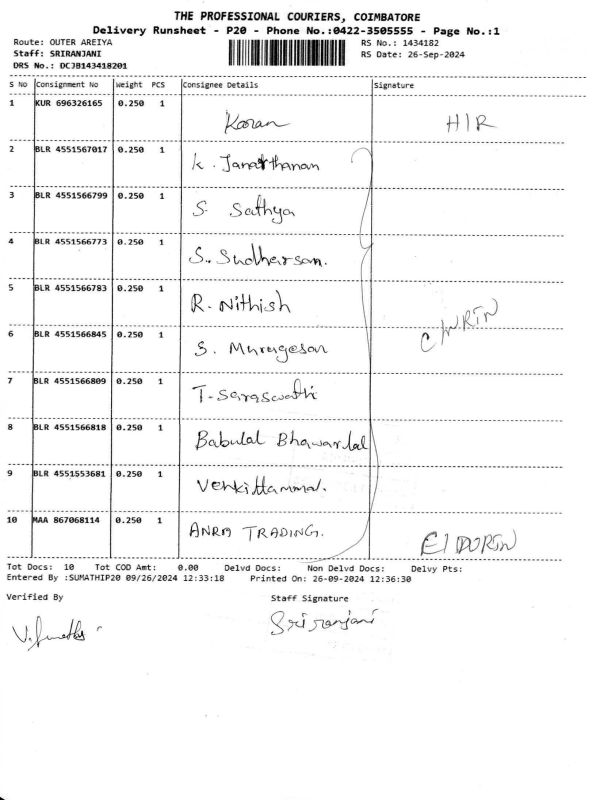 THE PROFESSIONAL COURIERS, COIMBATORE
Delivery Runsheet - P20 - Phone No.:0422-3505555 - Page No.:1
Route: OUTER AREIYA RS No.: 1434182
Staff: SRIRANJANI RS Date: 26-Sep-2024
DRS No.: DCJB143418201
S No Consignment No Weight PCS Consignee Details Signature
1 KUR 696326165 0.250 1 Karan H/R
2 BLR 4551567017 0.250 1 K. Janarthanan
3 BLR 4551566799 0.250 1 S. Sathya
4 BLR 4551566773 0.250 1 S. Sudharsan.
5 BLR 4551566783 0.250 1 R. Nithish
6 BLR 4551566845 0.250 1 S. Murugesan
7 BLR 4551566809 0.250 1 T. Saraswathi
8 BLR 4551566818 0.250 1 Babulal Bhawarlal
9 BLR 4551553681 0.250 1 Venkittammal.
10 MAA 867068114 0.250 1 TRADING.
Tot Docs: 10 Tot COD Amt: 0.00 Delvd Docs: Non Delvd Docs: Delvy Pts:
Entered By :SUMATHIP20 09/26/2024 12:33:18 Printed On: 26-09-2024 12:36:30
Verified By Staff Signature
Sriranjani